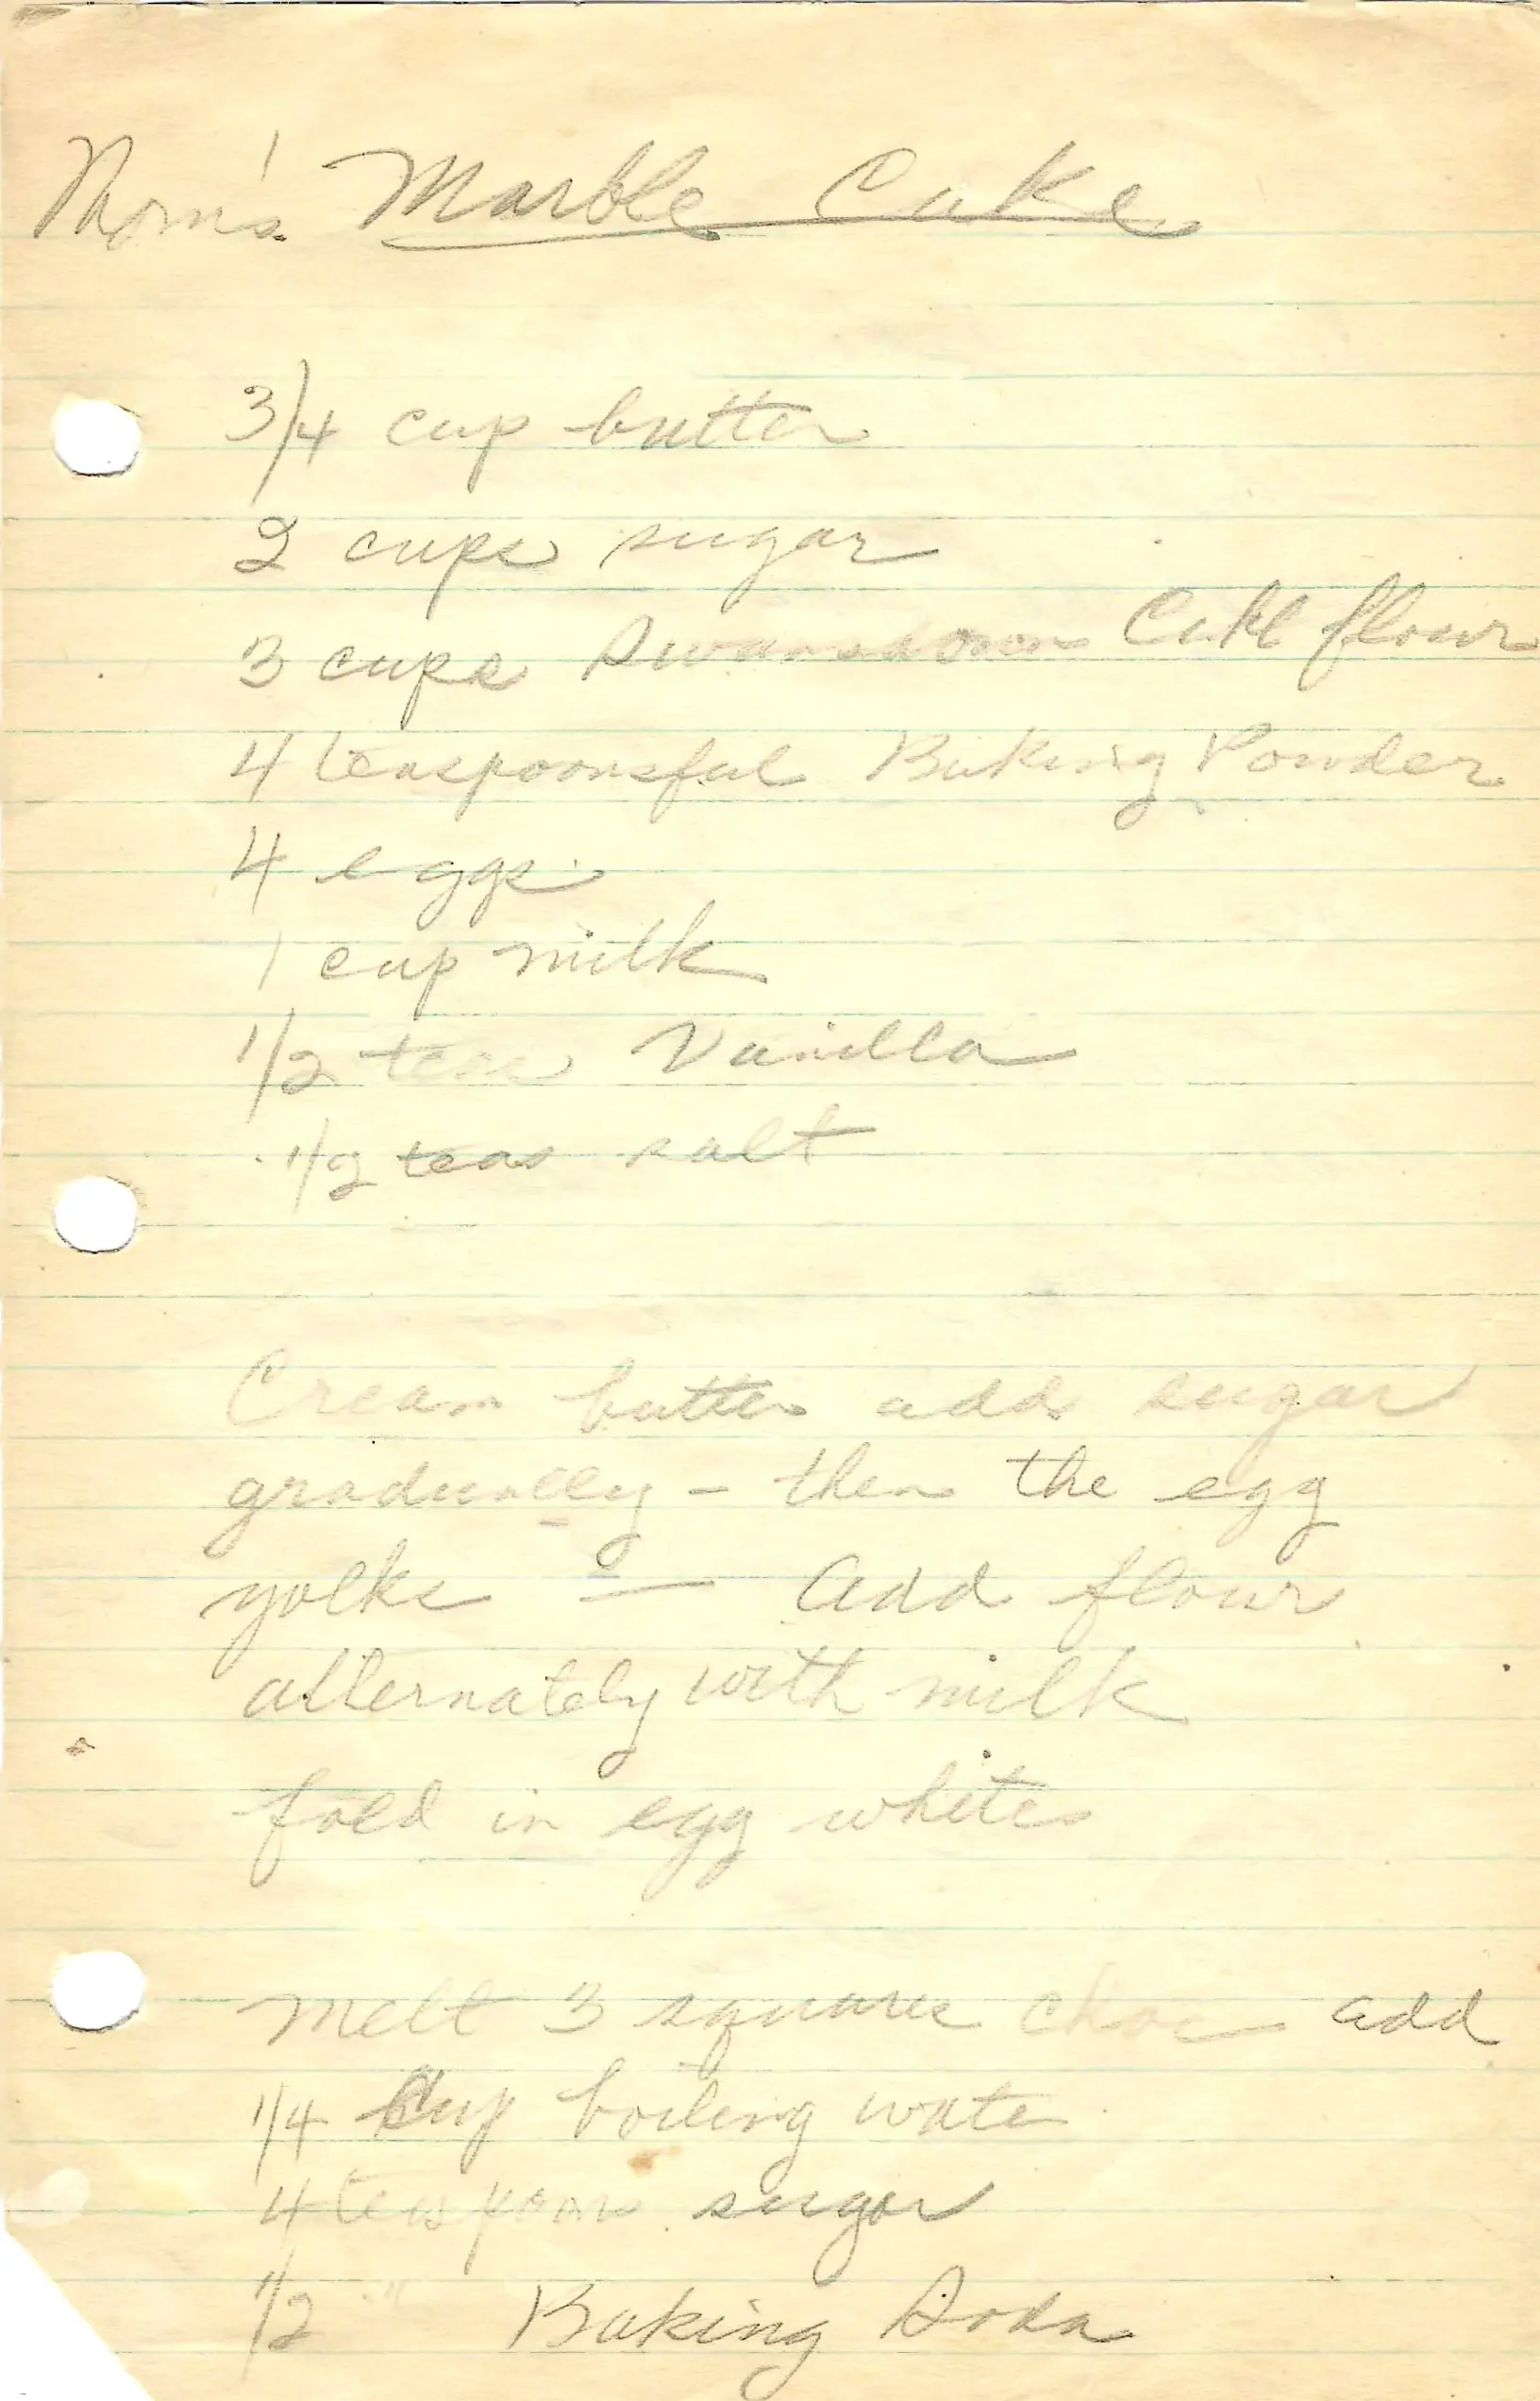 Mom's Marble Cake
3/4 cup butter
2 cups sugar
3 cups Swansdown Cake flour
4 teaspoonsful Baking Powder
4 eggs
1 cup milk
1/2 teas Vanilla
1/2 teas salt
Cream butter add sugar
gradually - then the egg
yolks — add flour
alternately with milk
fold in egg whites
Melt 3 squares choc add
1/4 Cup boiling water
4 teaspoon sugar
1/2 " Baking Soda